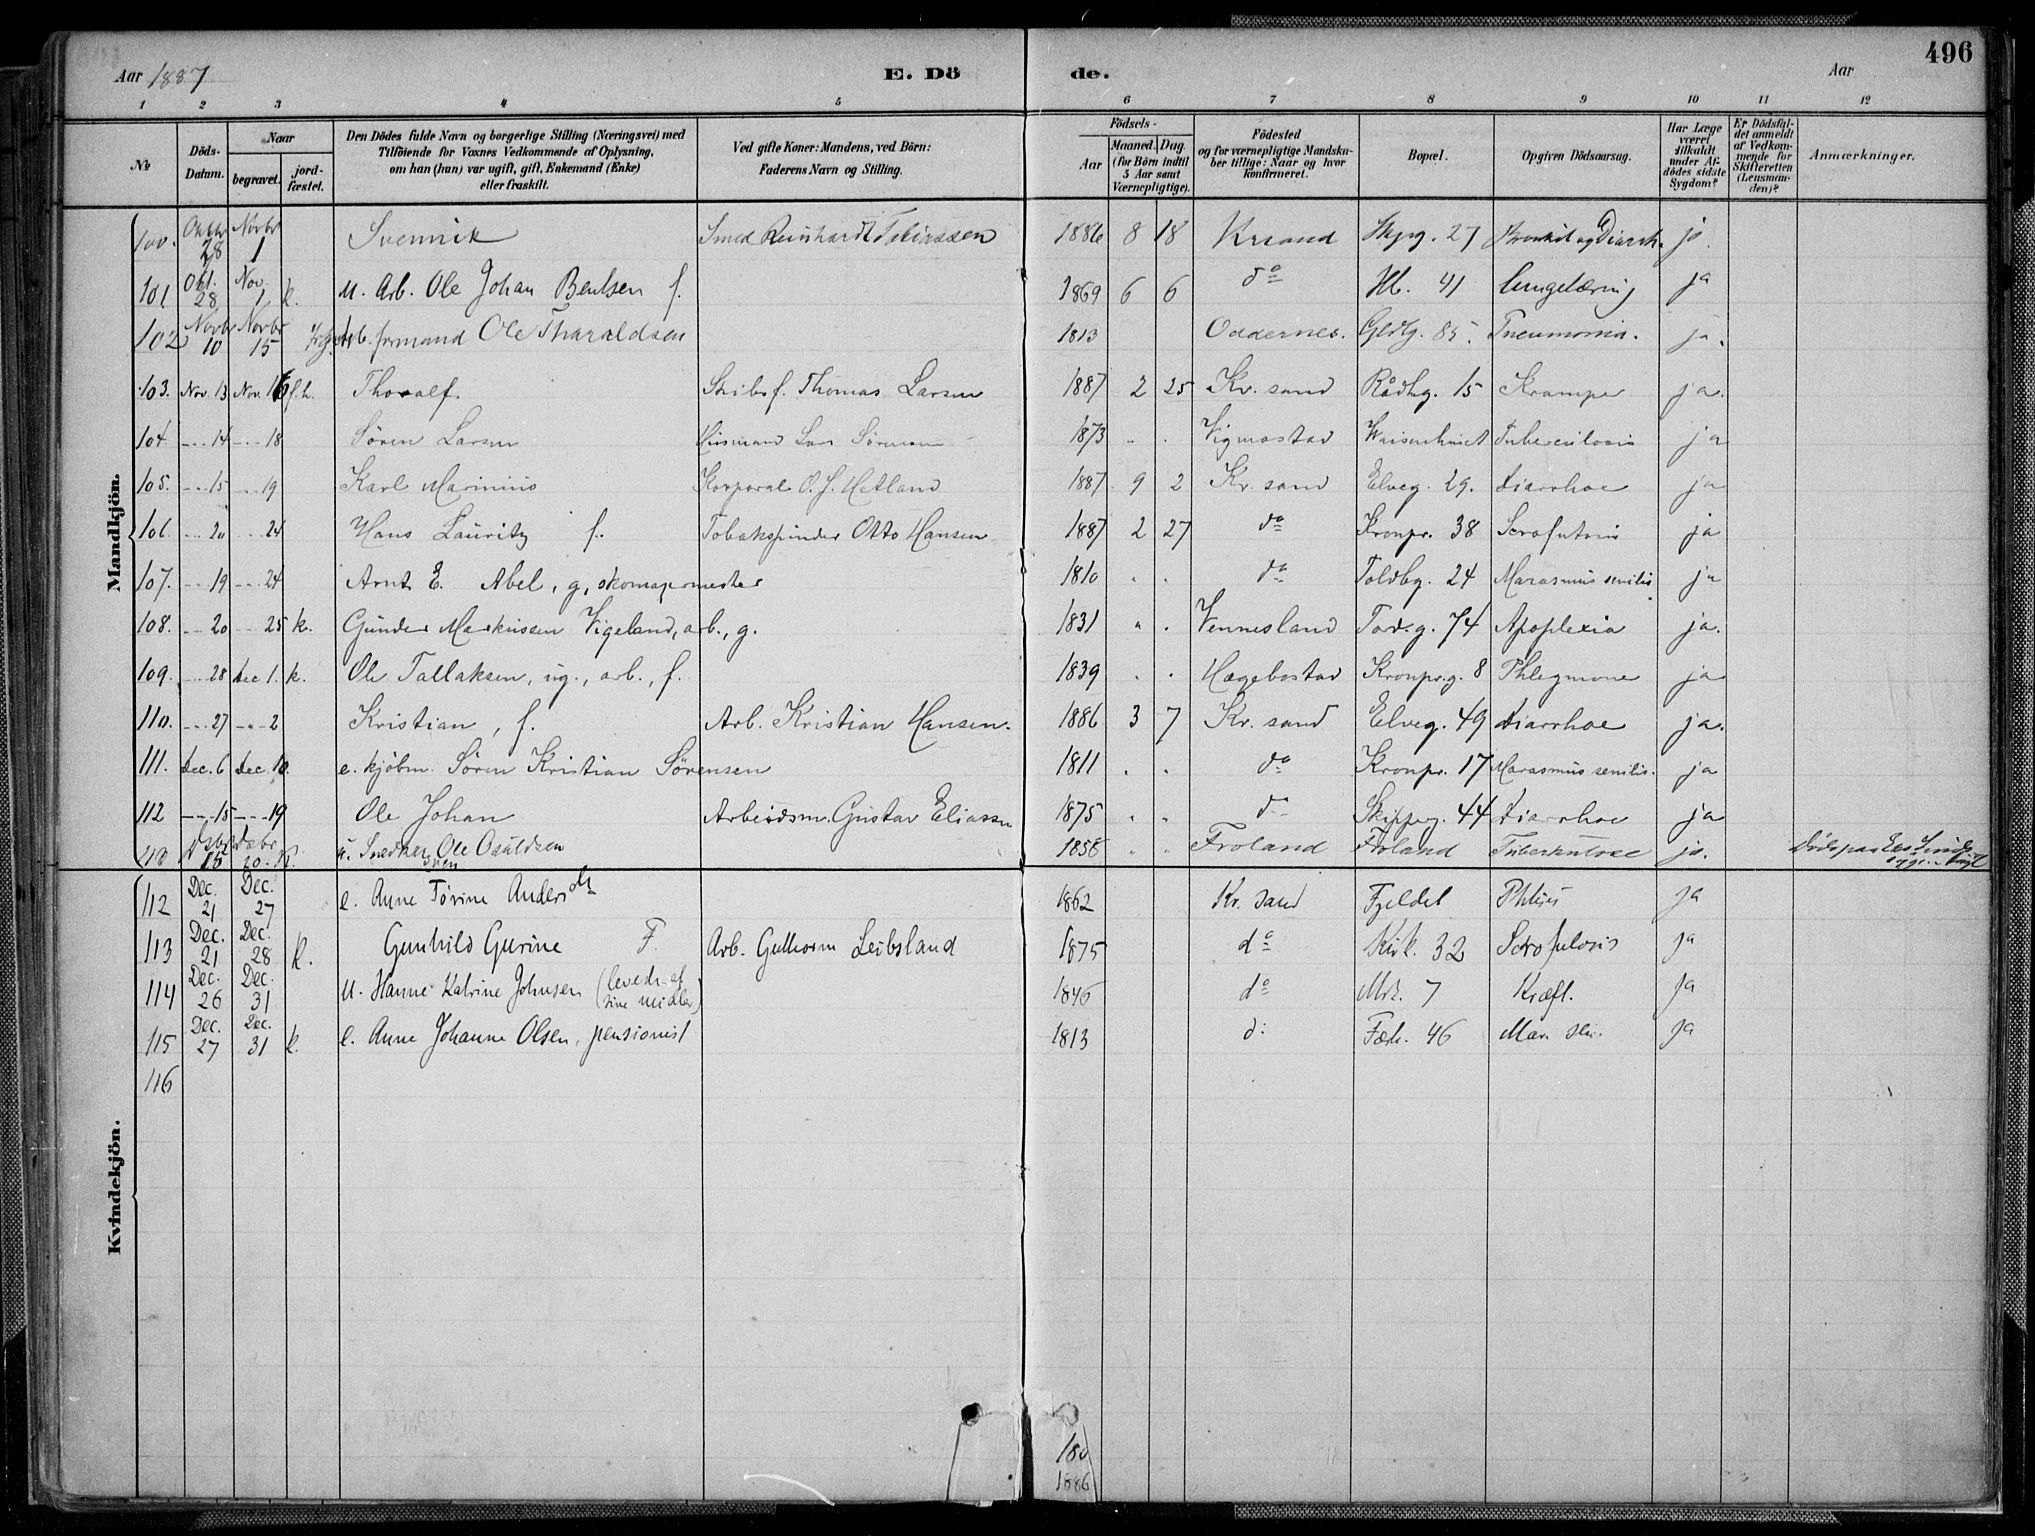 496
Aar 1887 E. Dö de. Aar
1 2 3 4 5 6 7 8 9 10 11 12
No
Döds-Datum.
Naar
begravet.
jord-fæstet.
Den Dödes fulde Navn og borgerlige Stilling (Næringsvei) med
Tilföiende for Voxnes Vedkommende af Oplysning,
om han (han) var ugift, gift, Enkemand (Enke)
eller fraskilt.
Ved gifte Koner: Mandens, ved Börn:
Faderens Navn og Stilling.
Födsels-
Aar
Maaned. Dag.
(for Börn indtil
5 Aar samt
Værnepligtige).
Födested
og for værnepligtige Mandska-
ber tillige: Naar og hvor
konfirmeret.
Bopæl.
Opgiven Dödsaarsag.
Har Læge
været
tilkaldt
under Af-
dödes sidste
Sygdom?
Er Dödsfal-
det anmeldt
af Vedkom-
mende for
Skifteretten
(Lensman-
den)?
Anmærkninger.
Mandkjön.
100. 28 Novbr 1 Smed Reinhardt Tobiassen 1886 8 18 Krsand 27 ja.
101 Okt. 28 Nov. 1 k. u. Arb. Ole Johan Bentsen f. 1869 6 6 do 41 ja
102 Novbr 10 Novbr 15 Arb. formand Ole Tharaldsen 1813 Oddernes. 85. Pneumonia. ja.
103. Nov. 13 Nov. 16 f.h. Thoralf Skibsf. Thomas Larsen 1887 2 25 Kr.sand Rådhg. 15 Krampe ja.
104 -..- 14 -..- 18 Sören Larsen Husmand 1873 Vigmostad Waisenhuset Tuberculosis ja
105. -..- 15 -..- 19 Karl Marinius Korporal O. J. Hetland 1887 9 2 Kr.sand Elveg. 29. Diarrhoe ja
106. -..- 20 -..- 24 Hans Lauritz f. Tobakspinder Otto Hansen 1887 2 27 do Kronpr. 38 ja
107. -..- 19 -..- 24 Arnt E. Abel, g, skomagermester 1810 do Toldbg. 24 Marasmus senilis ja
108. -..- 20 -..- 25 k. Gunder Markussen Vigeland, arb., g. 1831 Vennesland Tord.g. 74 Apoplexia ja.
109. -..- 28 Dec 1. k. Ole Tallaksen, ug., arb., f. 1839 Hægebostad Kronpr.g. 8 Phlegmone ja
110. -..- 27 -..- 2 Kristian, f. Arb. Kristian Hansen. 1886 3 7 Kr.sand Elveg. 49 Diarrhoe ja.
111. Dec. 6 Dec. 10. e. kjöbm. Sören Kristian Sörensen 1811 do Kronpr. 17 Marasmus senilis. ja
112 -..- 15 -..- 19 Ole Johan Arbeidsm. Gustav Eliassen 1875 do Skipperg. 44 Diarrhoe ja
15 20. k. u. Snedker Ole 1858 Froland Froland Tuberkulose ja.
Kvindekjön.
112 Dec. 21 Dec. 27 e. Anne Tørine Andersen 1862 Kr. sand Fjeldet Phtisis ja
113 Dec. 21 Dec. 28 k. Gunhild Gurine F. Arb. Guttorm Leibsland 1875 do Kirk. 32 Scrofulosis ja
114 Dec. 26 Dec. 31 u. Hanne Katrine Johnsen (levede af sine midler) 1846 do Mrk. 7 Kræft. ja
115 Dec. 27 Dec. 31 k. e. Anne Johanne Olsen, pensionist 1813 d: Fæst. 46 Mar. sen. ja
116
180
1886